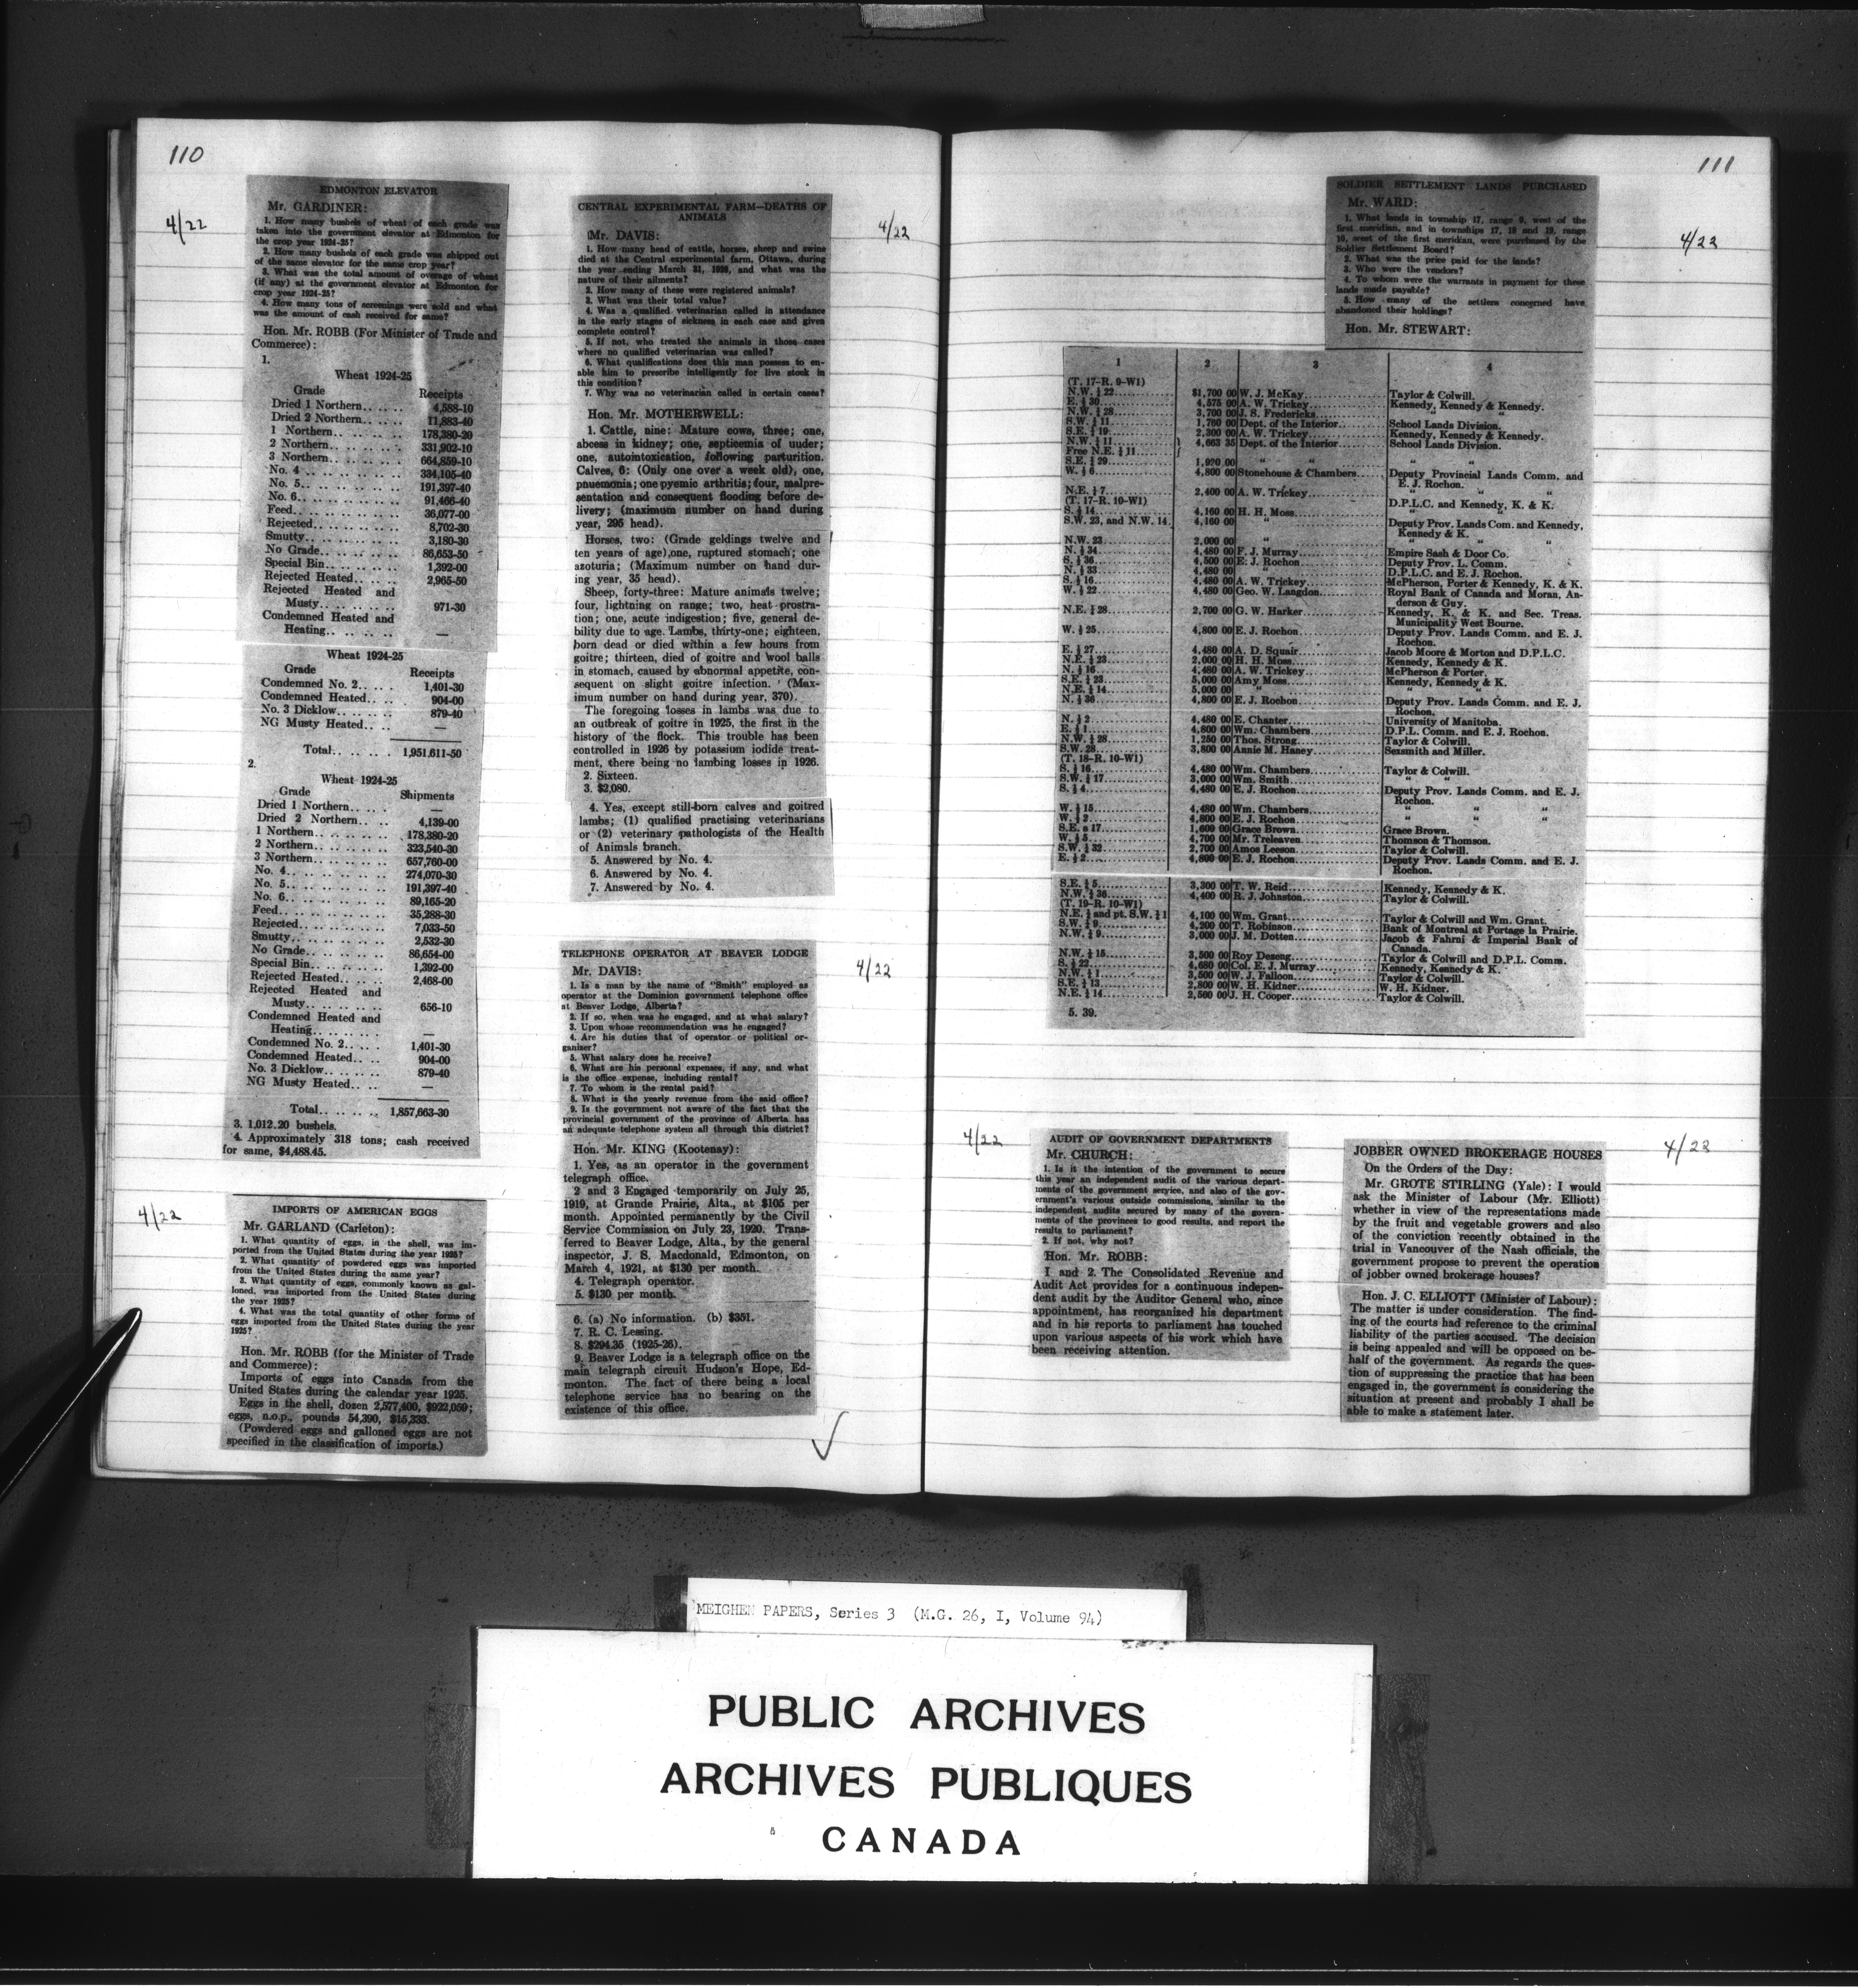 110
4/22
EDMONTON ELEVATOR
Mr. GARDINER:
1. How many bushels of wheat of each grade was
taken into the government elevator at Edmonton for
the crop year 1924-25?
2. How many bushels of each grade was shipped out
of the same elevator for the same crop year?
3. What was the total amount of overage of wheat
(if any) at the government elevator at Edmonton for
crop year 1924-25?
4. How many tons of screenings were sold and what
was the amount of cash received for same?
Hon. Mr. ROBB (For Minister of Trade and
Commerce):
1.
Wheat 1924-25
Grade Receipts
Dried 1 Northern.. .. .. 4,588-10
Dried 2 Northern.. .. .. 11,883-40
1 Northern.. .. .. .. .. 178,380-20
2 Northern.. .. .. .. .. 331,902-10
3 Northern.. .. .. .. .. 664,859-10
No. 4.. .. .. .. .. .. 334,105-40
No. 5.. .. .. .. .. .. 191,397-40
No. 6.. .. .. .. .. .. 91,466-40
Feed.. .. .. .. .. .. 36,077-00
Rejected.. .. .. .. .. 8,702-30
Smutty.. .. .. .. .. .. 3,180-30
No Grade.. .. .. .. .. 86,653-50
Special Bin.. .. .. .. .. 1,392-00
Rejected Heated.. .. .. 2,965-50
Rejected Heated and
Musty.. .. .. .. .. 971-30
Condemned Heated and
Heating.. .. .. .. —
Wheat 1924-25
Grade Receipts
Condemned No. 2.. .. .. 1,401-30
Condemned Heated.. .. 904-00
No. 3 Dicklow.. .. .. .. 879-40
NG Musty Heated.. .. —
Total.. .. .. .. 1,951,611-50
2.
Wheat 1924-25
Grade Shipments
Dried 1 Northern.. .. .. —
Dried 2 Northern.. .. .. 4,139-00
1 Northern.. .. .. .. .. 178,380-20
2 Northern.. .. .. .. .. 323,540-30
3 Northern.. .. .. .. .. 657,760-00
No. 4.. .. .. .. .. .. 274,070-30
No. 5.. .. .. .. .. .. 191,397-40
No. 6.. .. .. .. .. .. 89,165-20
Feed.. .. .. .. .. .. 35,288-30
Rejected.. .. .. .. .. 7,033-50
Smutty.. .. .. .. .. .. 2,532-30
No Grade.. .. .. .. .. 86,654-00
Special Bin.. .. .. .. .. 1,392-00
Rejected Heated.. .. .. 2,468-00
Rejected Heated and
Musty.. .. .. .. .. 656-10
Condemned Heated and
Heating.. .. .. .. —
Condemned No. 2.. .. .. 1,401-30
Condemned Heated.. .. 904-00
No. 3 Dicklow.. .. .. .. 879-40
NG Musty Heated.. .. —
Total.. .. .. .. 1,857,663-30
3. 1,012.20 bushels.
4. Approximately 318 tons; cash received
for same, $4,488.45.
4/22
IMPORTS OF AMERICAN EGGS
Mr. GARLAND (Carleton):
1. What quantity of eggs, in the shell, was im-
ported from the United States during the year 1925?
2. What quantity of powdered eggs was imported
from the United States during the same year?
3. What quantity of eggs, commonly known as gal-
loned, was imported from the United States during
the year 1925?
4. What was the total quantity of other forms of
eggs imported from the United States during the year
1925?
Hon. Mr. ROBB (for the Minister of Trade
and Commerce):
Imports of eggs into Canada from the
United States during the calendar year 1925.
Eggs in the shell, dozen 2,577,400, $922,059;
eggs, n.o.p., pounds 54,390, $15,333.
(Powdered eggs and galloned eggs are not
specified in the classification of imports.)
4/22
CENTRAL EXPERIMENTAL FARM—DEATHS OF
ANIMALS
Mr. DAVIS:
1. How many head of cattle, horses, sheep and swine
died at the Central experimental farm, Ottawa, during
the year ending March 31, 1926, and what was the
nature of their ailments?
2. How many of these were registered animals?
3. What was their total value?
4. Was a qualified veterinarian called in attendance
in the early stages of sickness in each case and given
complete control?
5. If not, who treated the animals in those cases
where no qualified veterinarian was called?
6. What qualifications does this man possess to en-
able him to prescribe intelligently for live stock in
this condition?
7. Why was no veterinarian called in certain cases?
Hon. Mr. MOTHERWELL:
1. Cattle, nine: Mature cows, three; one,
abcess in kidney; one, septicemia of uuder;
one, autointoxication, following parturition.
Calves, 6: (Only one over a week old), one,
pnuemonia; one pyemic arthritis; four, malpre-
sentation and consequent flooding before de-
livery; (maximum number on hand during
year, 295 head).
Horses, two: (Grade geldings twelve and
ten years of age),one, ruptured stomach; one
azoturia; (Maximum number on hand dur-
ing year, 35 head).
Sheep, forty-three: Mature animals twelve;
four, lightning on range; two, heat prostra-
tion; one, acute indigestion; five, general de-
bility due to age. Lambs, thirty-one; eighteen,
born dead or died within a few hours from
goitre; thirteen, died of goitre and wool balls
in stomach, caused by abnormal appetite, con-
sequent on slight goitre infection. (Max-
imum number on hand during year, 370).
The foregoing losses in lambs was due to
an outbreak of goitre in 1925, the first in the
history of the flock. This trouble has been
controlled in 1926 by potassium iodide treat-
ment, there being no lambing losses in 1926.
2. Sixteen.
3. $2,080.
4. Yes, except still-born calves and goitred
lambs; (1) qualified practising veterinarians
or (2) veterinary pathologists of the Health
of Animals branch.
5. Answered by No. 4.
6. Answered by No. 4.
7. Answered by No. 4.
4/22
TELEPHONE OPERATOR AT BEAVER LODGE
Mr. DAVIS:
1. Is a man by the name of "Smith" employed as
operator at the Dominion government telephone office
at Beaver Lodge, Alberta?
2. If so, when was he engaged, and at what salary?
3. Upon whose recommendation was he engaged?
4. Are his duties that of operator or political or-
ganizer?
5. What salary does he receive?
6. What are his personal expenses, if any, and what
is the office expense, including rental?
7. To whom is the rental paid?
8. What is the yearly revenue from the said office?
9. Is the government not aware of the fact that the
provincial government of the province of Alberta has
an adequate telephone system all through this district?
Hon. Mr. KING (Kootenay):
1. Yes, as an operator in the government
telegraph office.
2 and 3 Engaged temporarily on July 25,
1919, at Grande Prairie, Alta., at $105 per
month. Appointed permanently by the Civil
Service Commission on July 23, 1920. Trans-
ferred to Beaver Lodge, Alta., by the general
inspector, J. S. Macdonald, Edmonton, on
March 4, 1921, at $130 per month.
4. Telegraph operator.
5. $130 per month.
6. (a) No information. (b) $351.
7. R. C. Lossing.
8. $294.35 (1925-26).
9. Beaver Lodge is a telegraph office on the
main telegraph circuit Hudson's Hope, Ed-
monton. The fact of there being a local
telephone service has no bearing on the
existence of this office.
111
4/22
SOLDIER SETTLEMENT LANDS PURCHASED
Mr. WARD:
1. What lands in township 17, range 9, west of the
first meridian, and in townships 17, 18 and 19, range
10, west of the first meridian, were purchased by the
Soldier Settlement Board?
2. What was the price paid for the lands?
3. Who were the vendors?
4. To whom were the warrants in payment for these
lands made payable?
5. How many of the settlers concerned have
abandoned their holdings?
Hon. Mr. STEWART:
1 2 3 4
(T. 17-R. 9-W1)
N.W. ¼ 22 $1,700 00 W. J. McKay Taylor & Colwill.
E. ½ 30 4,575 00 A. W. Trickey Kennedy, Kennedy & Kennedy.
N.W. ¼ 28 3,700 00 J. S. Fredericks " "
S.W. ¼ 11 1,760 00 Dept. of the Interior School Lands Division.
S.E. ¼ 19 2,300 00 A. W. Trickey Kennedy, Kennedy & Kennedy.
N.W. ¼ 11 } 4,663 35 Dept. of the Interior School Lands Division.
Free N.E. ¼ 11 }
S.E. ¼ 29 1,920 00 " " " "
W. ½ 6 4,800 00 Stonehouse & Chambers Deputy Provincial Lands Comm. and
E. J. Rochon.
N.E. ¼ 7 2,400 00 A. W. Trickey " " "
(T. 17-R. 10-W1)
S. ½ 14 4,160 00 H. H. Moss D.P.L.C. and Kennedy, K. & K.
S.W. 23, and N.W. 14 4,160 00 " Deputy Prov. Lands Com. and Kennedy,
Kennedy & K.
N.W. 23 2,000 00 " " " "
N. ½ 34 4,480 00 F. J. Murray Empire Sash & Door Co.
S. ½ 36 4,500 00 E. J. Rochon Deputy Prov. L. Comm.
N. ½ 33 4,480 00 " D.P.L.C. and E. J. Rochon.
S. ½ 16 4,480 00 A. W. Trickey McPherson, Porter & Kennedy, K. & K.
W. ½ 22 4,480 00 Geo. W. Langdon Royal Bank of Canada and Moran, An-
derson & Guy.
N.E. ¼ 28 2,700 00 G. W. Harker Kennedy, K. & K. and Sec. Treas.
Municipality West Bourne.
W. ½ 25 4,800 00 E. J. Rochon Deputy Prov. Lands Comm. and E. J.
Rochon.
E. ½ 27 4,480 00 A. D. Squair Jacob Moore & Morton and D.P.L.C.
N.E. ¼ 23 2,000 00 H. H. Moss Kennedy, Kennedy & K.
N. ½ 16 4,480 00 A. W. Trickey McPherson & Porter.
S.E. ¼ 23 5,000 00 Amy Moss Kennedy, Kennedy & K.
N.E. ¼ 14 5,000 00 " " "
N. ½ 36 4,800 00 E. J. Rochon Deputy Prov. Lands Comm. and E. J.
Rochon.
N. ½ 2 4,480 00 E. Chanter University of Manitoba.
E. ½ 1 4,800 00 Wm. Chambers D.P.L. Comm. and E. J. Rochon.
N.W. ¼ 28 1,250 00 Thos. Strong Taylor & Colwill.
S.W. 28 3,800 00 Annie M. Haney Sexsmith and Miller.
(T. 18-R. 10-W1)
S. ½ 16 4,480 00 Wm. Chambers Taylor & Colwill.
S.W. ¼ 17 3,000 00 Wm. Smith " "
S. ½ 4 4,480 00 E. J. Rochon Deputy Prov. Lands Comm. and E. J.
Rochon.
W. ½ 15 4,480 00 Wm. Chambers " " "
W. ½ 2 4,800 00 E. J. Rochon " " "
S.E. a 17 1,600 00 Grace Brown Grace Brown.
W. ½ 5 4,700 00 Mr. Treleaven Thomson & Thomson.
S.W. ¼ 32 2,700 00 Amos Leeson Taylor & Colwill.
E. ½ 2 4,800 00 E. J. Rochon Deputy Prov. Lands Comm. and E. J.
Rochon.
S.E. ¼ 5 3,300 00 T. W. Reid Kennedy, Kennedy & K.
N.W. ¼ 36 4,400 00 R. J. Johnston Taylor & Colwill.
(T. 19-R. 10-W1)
N.E. ¼ and pt. S.W. ¼ 1 4,100 00 Wm. Grant Taylor & Colwill and Wm. Grant.
S.W. ¼ 9 4,200 00 T. Robinson Bank of Montreal at Portage la Prairie.
N.W. ¼ 9 3,000 00 J. M. Dotten Jacob & Fahrni & Imperial Bank of
Canada.
N.W. ¼ 15 3,500 00 Roy Deseng Taylor & Colwill and D.P.L. Comm.
S. ½ 22 4,680 00 Col. E. J. Murray Kennedy, Kennedy & K.
N.W. ¼ 1 3,500 00 W. J. Falloon Taylor & Colwill.
S.E. ¼ 13 2,800 00 W. H. Kidner W. H. Kidner.
N.E. ¼ 14 2,500 00 J. H. Cooper Taylor & Colwill.
5. 39.
4/22
AUDIT OF GOVERNMENT DEPARTMENTS
Mr. CHURCH:
1. Is it the intention of the government to secure
this year an independent audit of the various depart-
ments of the government service, and also of the gov-
ernment's various outside commissions, similar to the
independent audits secured by many of the govern-
ments of the provinces to good results, and report the
results to parliament?
2. If not, why not?
Hon. Mr. ROBB:
1 and 2. The Consolidated Revenue and
Audit Act provides for a continuous indepen-
dent audit by the Auditor General who, since
appointment, has reorganized his department
and in his reports to parliament has touched
upon various aspects of his work which have
been receiving attention.
4/23
JOBBER OWNED BROKERAGE HOUSES
On the Orders of the Day:
Mr. GROTE STIRLING (Yale): I would
ask the Minister of Labour (Mr. Elliott)
whether in view of the representations made
by the fruit and vegetable growers and also
of the conviction recently obtained in the
trial in Vancouver of the Nash officials, the
government propose to prevent the operation
of jobber owned brokerage houses?
Hon. J. C. ELLIOTT (Minister of Labour):
The matter is under consideration. The find-
ing of the courts had reference to the criminal
liability of the parties accused. The decision
is being appealed and will be opposed on be-
half of the government. As regards the ques-
tion of suppressing the practice that has been
engaged in, the government is considering the
situation at present and probably I shall be
able to make a statement later.
MEIGHEN PAPERS, Series 3 (M.G. 26, I, Volume 94)
PUBLIC ARCHIVES
ARCHIVES PUBLIQUES
CANADA